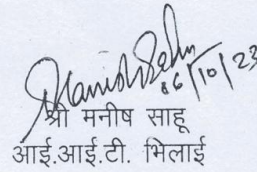 Manish Sahu
06/10/23
श्री मनीष साहू
आई.आई.टी. भिलाई